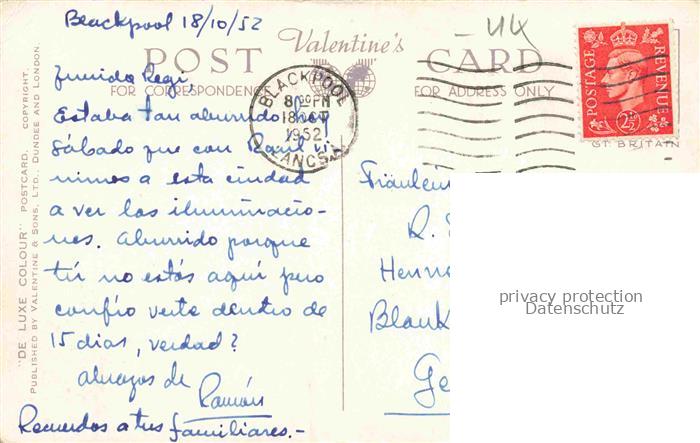 Blackpool 18/10/52
- UK
POST Valentine's CARD
FOR CORRESPONDENCE FOR ADDRESS ONLY
BLACKPOOL
8 00 PM
18 OCT
1952
LANCS.
POSTAGE REVENUE
2½D
GT. BRITAIN
Querida Regi,
Estaba tan aburrido hoy
sábado que con Raúl vi-
nimos a esta ciudad
a ver las iluminacio-
nes. Aburrido porque
tú no estás aquí pero
confío verte dentro de
15 días, verdad?
abrazos de
Ramón
Recuerdos a tus familiares.-
Fräulein
R.
Henn
Blank
Ge
"DE LUXE COLOUR" POSTCARD. COPYRIGHT.
PUBLISHED BY VALENTINE & SONS, LTD., DUNDEE AND LONDON.
privacy protection
Datenschutz